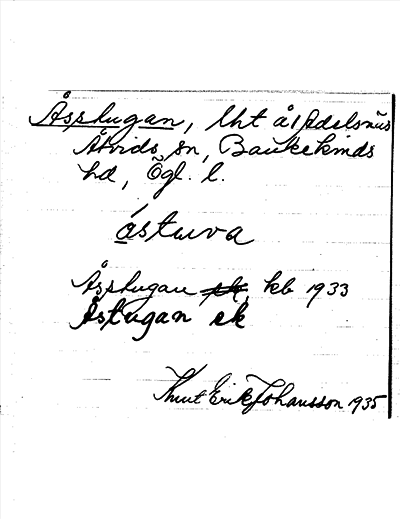 Åsstugan, lht å1 Adelsnäs
Åtvids sn, Bankekinds
hd, Ögl. l.
åstuva
Åsstugan kb 1933
Åstugan ek
Knut Erik Johansson 1935